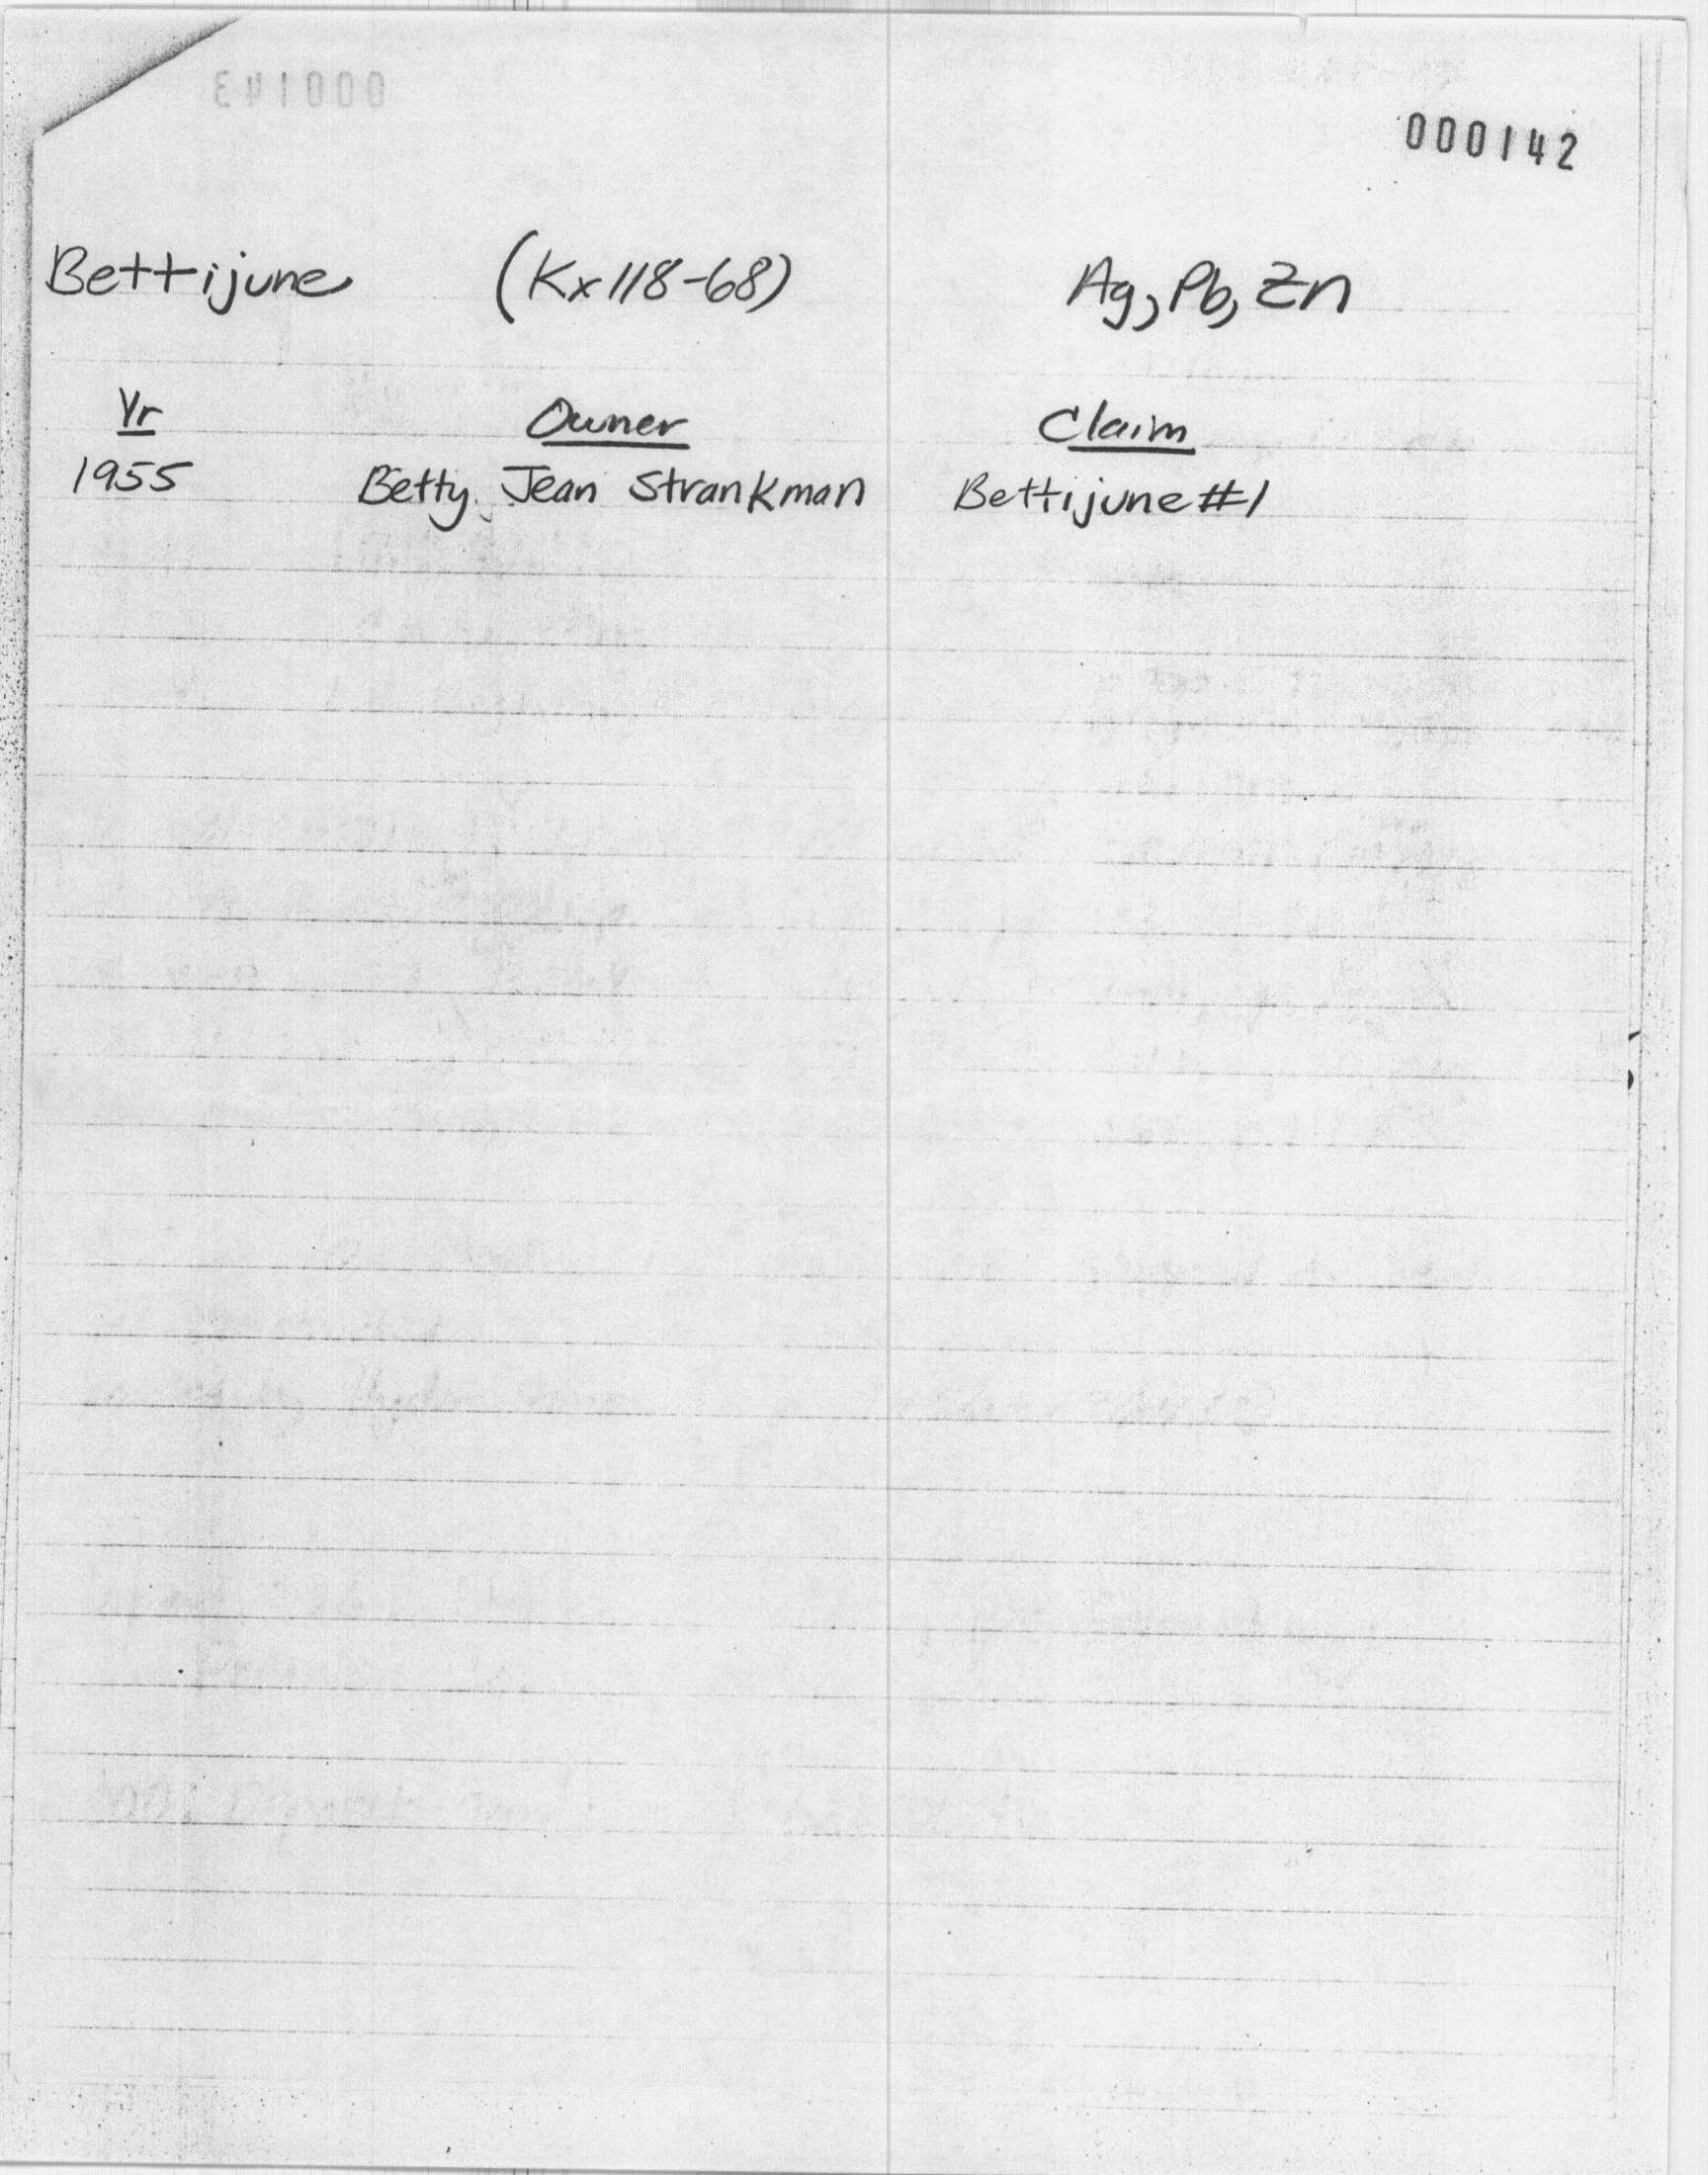 000143
000142
Bettijune (Kx118-68) Ag, Pb, Zn
Yr Owner Claim
1955 Betty Jean Strankman Bettijune #1